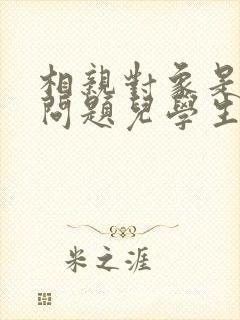 相親對象是
問題兒學生
米之涯